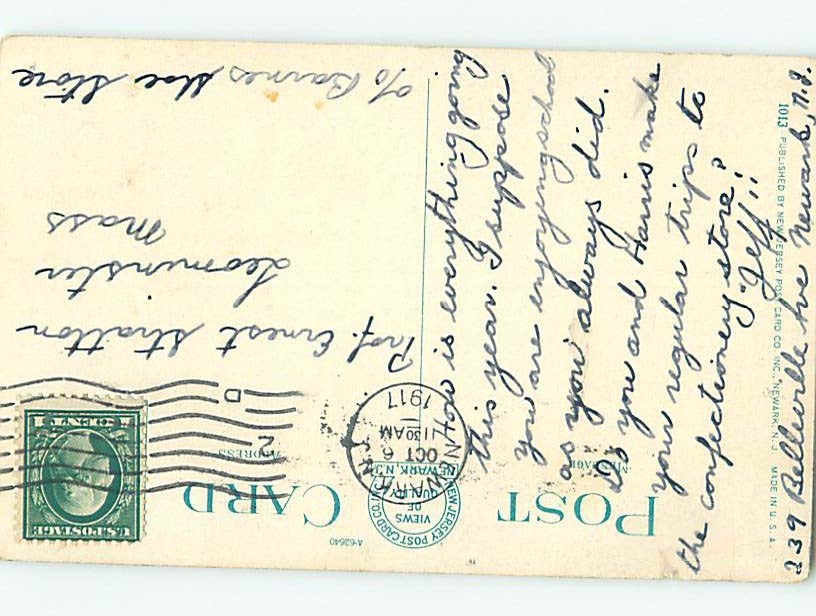 POST CARD
A-62640
NEW JERSEY POST CARD CO. INC.
VIEWS
OF
QUALITY
NEWARK, N.J.
ADDRESS
U.S. POSTAGE
NEWARK
OCT 6
11 30 AM
1917
N.J.
2
D
How is everything going
this year. I suppose
you are enjoying school
as you always did.
Do you and Harris make
your regular trips to
the confectionery store?
"Jeff"!!
239 Belleville Ave Newark, N.J.
1013 PUBLISHED BY NEW JERSEY POST CARD CO. INC., NEWARK, N.J. MADE IN U.S.A.
Prof. Ernest Stratton
Leominster
Mass
c/o Barnes Shoe Store